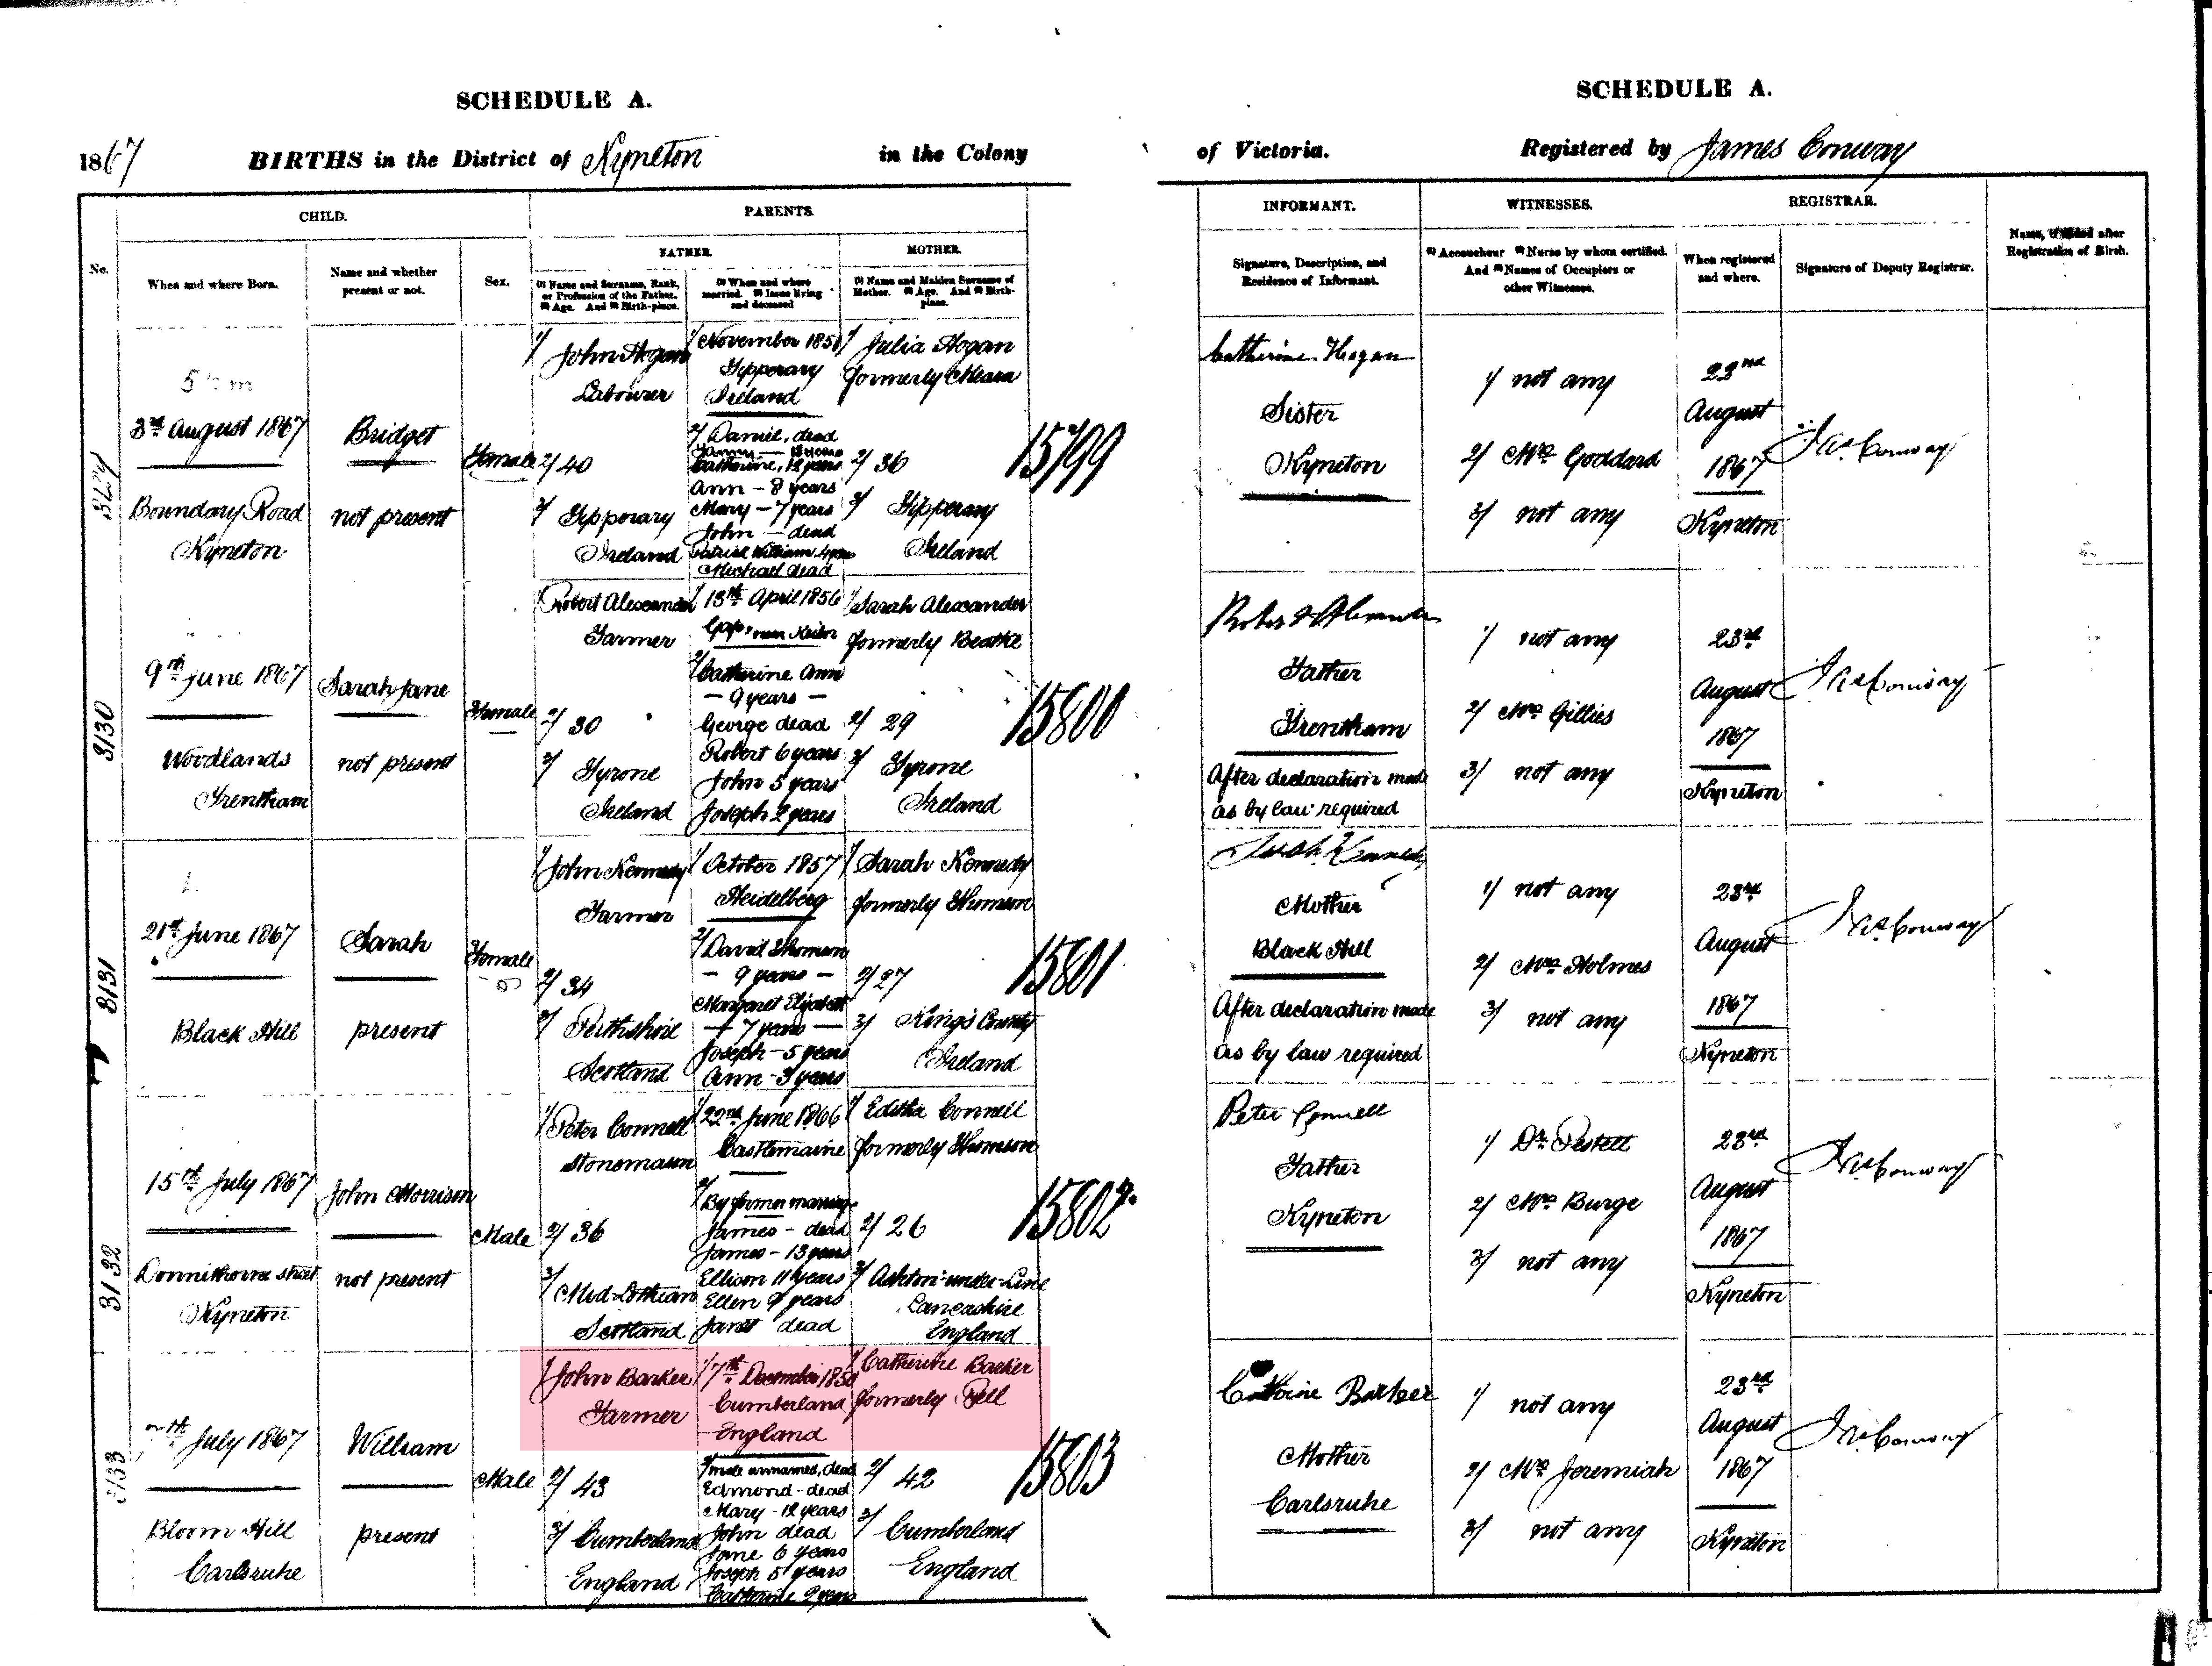 SCHEDULE A.
1867 BIRTHS in the District of Kyneton in the Colony
CHILD.
PARENTS.
FATHER.
MOTHER.
No.
When and where Born.
Name and whether
present or not.
Sex.
(1) Name and Surname, Rank,
or Profession of the Father.
(2) Age. And (3) Birth-place.
(1) When and where
married. (2) Issue living
and deceased
(1) Name and Maiden Surname of
Mother. (2) Age. And (3) Birth-
place.
3rd August 1867
Boundary Road
Kyneton
Bridget
not present
Female
1/ John Hogan
Labourer
2/ 40
3/ Tipperary
Ireland
1/ November 1851
Tipperary
Ireland
2/ Daniel, dead
Fanny — 13 years
Catherine, 12 years
Ann - 8 years
Mary - 7 years
John — dead
Patrick William 4 years
Michael dead
1/ Julia Hogan
formerly Meara
2/ 36
3/ Tipperary
Ireland
15799
3130
9th June 1867
Woodlands
Trentham
Sarah Jane
not present
Female
1/ Robert Alexander
Farmer
2/ 30
3/ Tyrone
Ireland
1/ 13th April 1856
Gap, near Keilor
2/ Catherine Ann
- 9 years -
George dead
Robert 6 years
John 5 years
Joseph 2 years
1/ Sarah Alexander
formerly Beattie
2/ 29
3/ Tyrone
Ireland
15800
3131
21st June 1867
Black Hill
Sarah
present
Female
1/ John Kennedy
Farmer
2/ 34
3/ Perthshire
Scotland
1/ October 1857
Heidelberg
2/ David Thomson
- 9 years -
Margaret Elizabeth
- 7 years -
Joseph - 5 years
Ann - 3 years
1/ Sarah Kennedy
formerly Thomson
2/ 27
3/ King's County
Ireland
15801
3132
15th July 1867
Donnithorne street
Kyneton
John Morrison
not present
Male
1/ Peter Connell
Stonemason
2/ 36
3/ Mid-Lothian
Scotland
1/ 22nd June 1866
Castlemaine
2/ By former marriage
James - dead
James - 13 years
Ellison 11 years
Ellen 9 years
Janet dead
1/ Editha Connell
formerly Thomson
2/ 26
3/ Ashton-under-Line
Lancashire
England
15802
3133
July 1867
Bloom Hill
Carlsruhe
William
present
Male
1/ John Barker
Farmer
2/ 43
3/ Cumberland
England
1/ 7th December 1850
Cumberland
England
2/ male unnamed, dead
Edmond - dead
Mary - 12 years
John dead
Jane 6 years
Joseph 5 years
Catherine 2 years
1/ Catherine Barker
formerly Pell
2/ 42
3/ Cumberland
England
15803
SCHEDULE A.
of Victoria. Registered by James Conway
INFORMANT.
WITNESSES.
REGISTRAR.
Signature, Description, and
Residence of Informant.
(1) Accoucheur (2) Nurse by whom certified.
And (3) Names of Occupiers or
other Witnesses.
When registered
and where.
Signature of Deputy Registrar.
Name, if added after
Registration of Birth.
Catherine Hogan
Sister
Kyneton
1/ not any
2/ Mrs Goddard
3/ not any
22nd
August
1867
Kyneton
Jas Conway
Robert Alexander
Father
Trentham
After declaration made
as by law required
1/ not any
2/ Mrs Gillies
3/ not any
23rd
August
1867
Kyneton
Jas Conway
Sarah Kennedy
Mother
Black Hill
After declaration made
as by law required
1/ not any
2/ Mrs Holmes
3/ not any
23rd
August
1867
Kyneton
Jas Conway
Peter Connell
Father
Kyneton
1/ Dr Pestell
2/ Mrs Burge
3/ not any
23rd
August
1867
Kyneton
Jas Conway
Catherine Barker
Mother
Carlsruhe
1/ not any
2/ Mrs Jeremiah
3/ not any
23rd
August
1867
Kyneton
Jas Conway